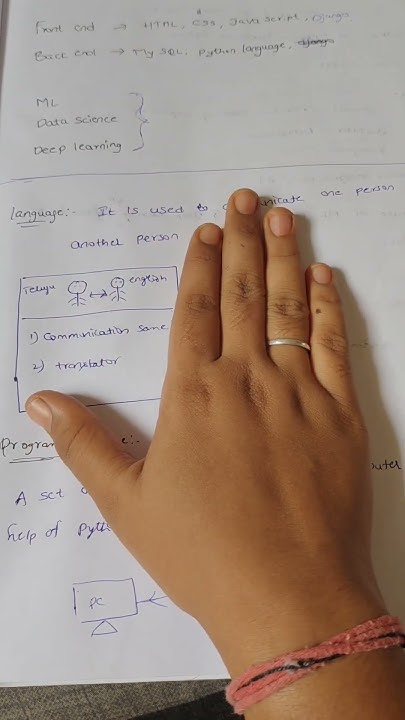 Front end → HTML, CSS, Java script, Django
Back end → My SQL, python language,
ML
Data science
Deep learning
language:- It is used to one person
another person
Telugu english
1) Communication same
2) translator
A set
help of
PC